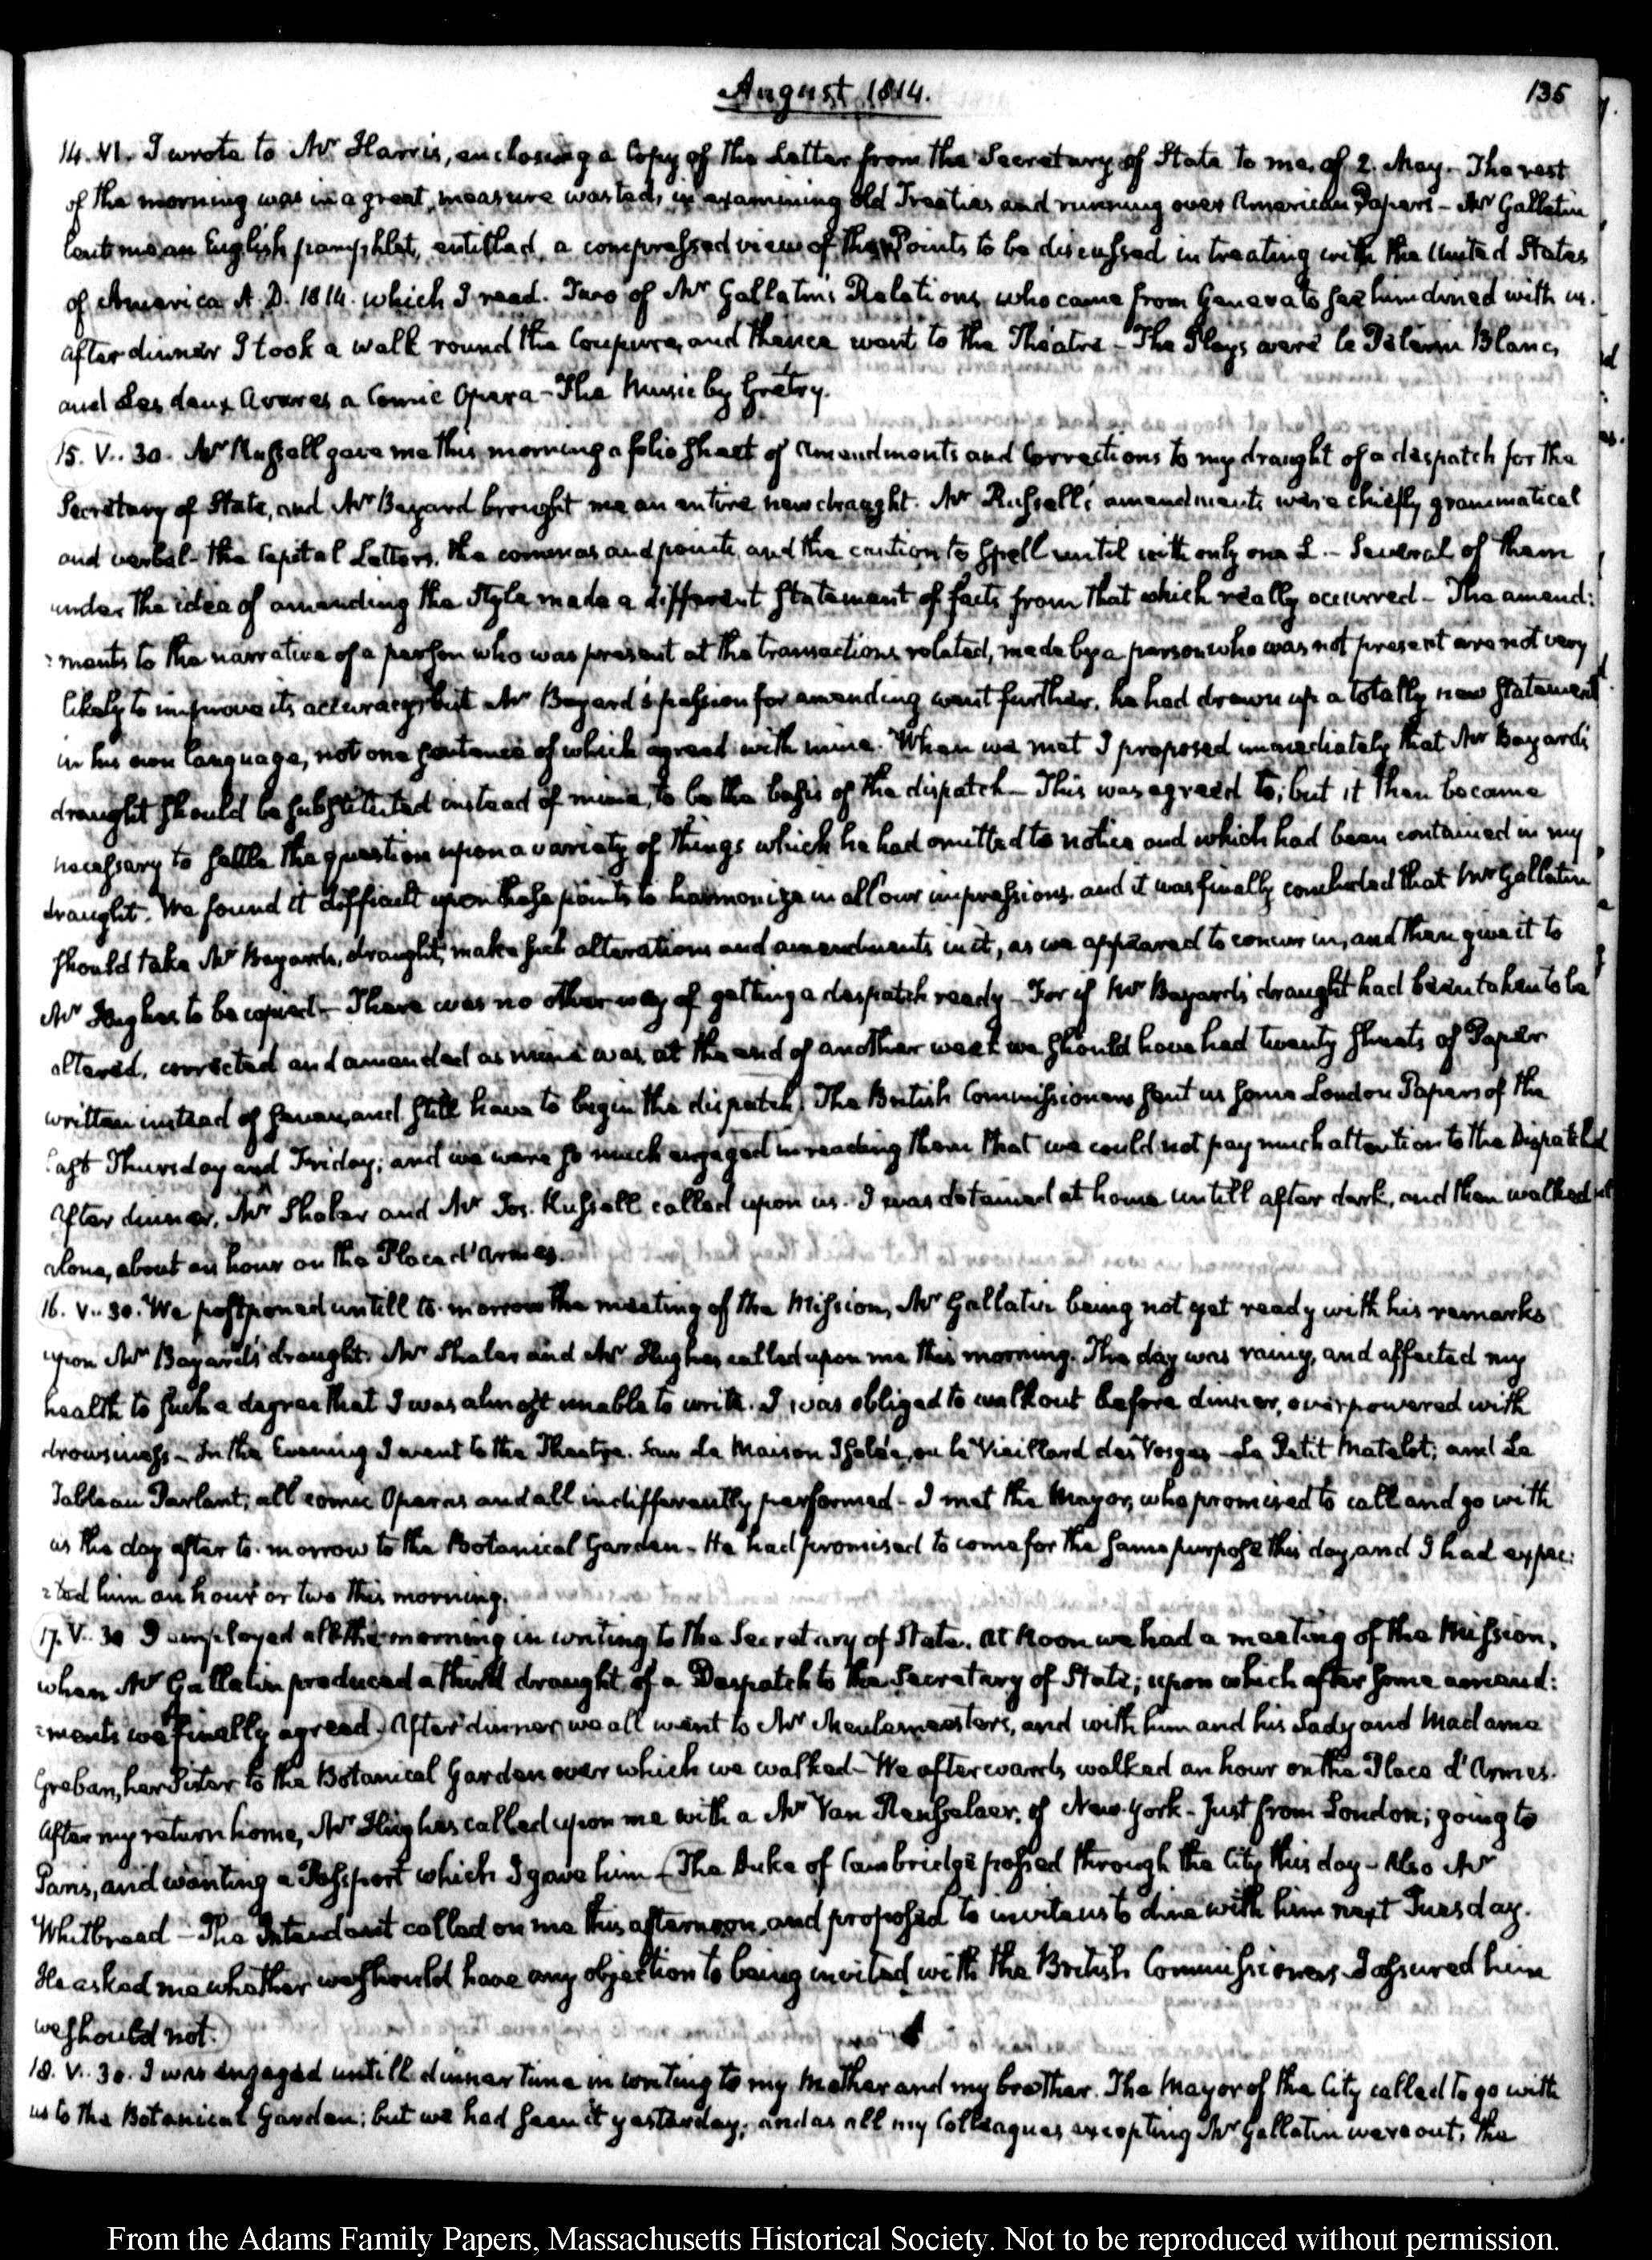 August 1814.
135
14. VI. I wrote to Mr Harris, enclosing a Copy of the Letter from the Secretary of State to me, of 2. May. The rest
of the morning was in a great measure wasted, in examining old Treaties and running over American Papers - Mr Gallatin
lent me an English pamphlet, entitled, a compressed view of the Points to be discussed in treating with the United States
of America A.D. 1814. which I read. Two of Mr Gallatin's Relations who came from Geneva to see him dined with us.
After dinner I took a walk round the Coupure, and thence went to the Theatre - The Plays were le Pélerin Blanc,
and Les deux Avares a Comic Opera - The Music by Gretry.
15. V.. 30. Mr Russell gave me this morning a folio sheet of Amendments and Corrections to my draught of a despatch for the
Secretary of State, and Mr Bayard brought me an entire new draught. Mr Russell's amendments were chiefly grammatical
and verbal - the Capital Letters, the commas and points, and the caution to spell until with only one L. - Several of them
under the idea of amending the Style made a different statement of facts from that which really occurred - The amend:
:ments to the narrative of a person who was present at the transactions related, made by a person who was not present are not very
likely to improve its accuracy; but Mr Bayard's passion for amending went further. he had drawn up a totally new statement
in his own language, not one sentence of which agreed with mine. When we met I proposed immediately that Mr Bayard's
draught should be substituted instead of mine, to be the basis of the dispatch - This was agreed to; but it then became
necessary to settle the question upon a variety of things which he had omitted to notice and which had been contained in my
draught. We found it difficult upon these points to harmonize in all our impressions. and it was finally concluded that Mr Gallatin
should take Mr Bayard's draught, make such alterations and amendments in it, as we appeared to concur in, and then give it to
Mr Hughes to be copied - There was no other way of getting a despatch ready - For if Mr Bayard's draught had been taken to be
altered, corrected and amended as mine was, at the end of another week we should have had twenty sheets of Paper
written instead of seven, and still have to begin the dispatch. The British Commissioners sent us some London Papers of the
last Thursday and Friday; and we were so much engaged in reading them that we could not pay much attention to the Dispatch
After dinner, Mr Shaler and Mr Jos. Russell called upon us. I was detained at home untill after dark, and then walked
alone, about an hour on the Place d'Armes.
16. V.. 30. We postponed untill to-morrow the meeting of the Mission, Mr Gallatin being not yet ready with his remarks
upon Mr Bayard's draught. Mr Shaler and Mr Hughes called upon me this morning. The day was rainy, and affected my
health to such a degree that I was almost unable to write. I was obliged to walk out before dinner, overpowered with
drowsiness - In the Evening I went to the Theatre. Saw La Maison Isolée, ou le Vieillard des Vosges - Le Petit Matelot; and Le
Tableau Parlant; all comic Operas and all indifferently performed - I met the Mayor, who promised to call and go with
us the day after to-morrow to the Botanical Garden - He had promised to come for the same purpose this day, and I had expec:
:ted him an hour or two this morning.
17. V.. 30 I employed all the morning in writing to the Secretary of State. At Noon we had a meeting of the Mission,
when Mr Gallatin produced a third draught of a Despatch to the Secretary of State; upon which after some amend:
:ments we finally agreed. After dinner, we all went to Mr Meulemeester's, and with him and his Lady and Madame
Greban, her Sister to the Botanical Garden over which we walked - We afterwards walked an hour on the Place d'Armes.
After my return home, Mr Hughes called upon me with a Mr Van Rensselaer, of New-York - Just from London; going to
Paris, and wanting a Passport which I gave him - The Duke of Cambridge passed through the City this day - Also Mr
Whitbread - The Intendant called on me this afternoon, and proposed to invite us to dine with him next Tuesday.
He asked me whether we should have any objection to being invited with the British Commissioners. I assured him
we should not.
18. V.. 30. I was engaged untill dinner time in writing to my Mother and my brother. The Mayor of the City called to go with
us to the Botanical Garden; but we had seen it yesterday; and as all my Colleagues excepting Mr Gallatin were out, the
From the Adams Family Papers, Massachusetts Historical Society. Not to be reproduced without permission.